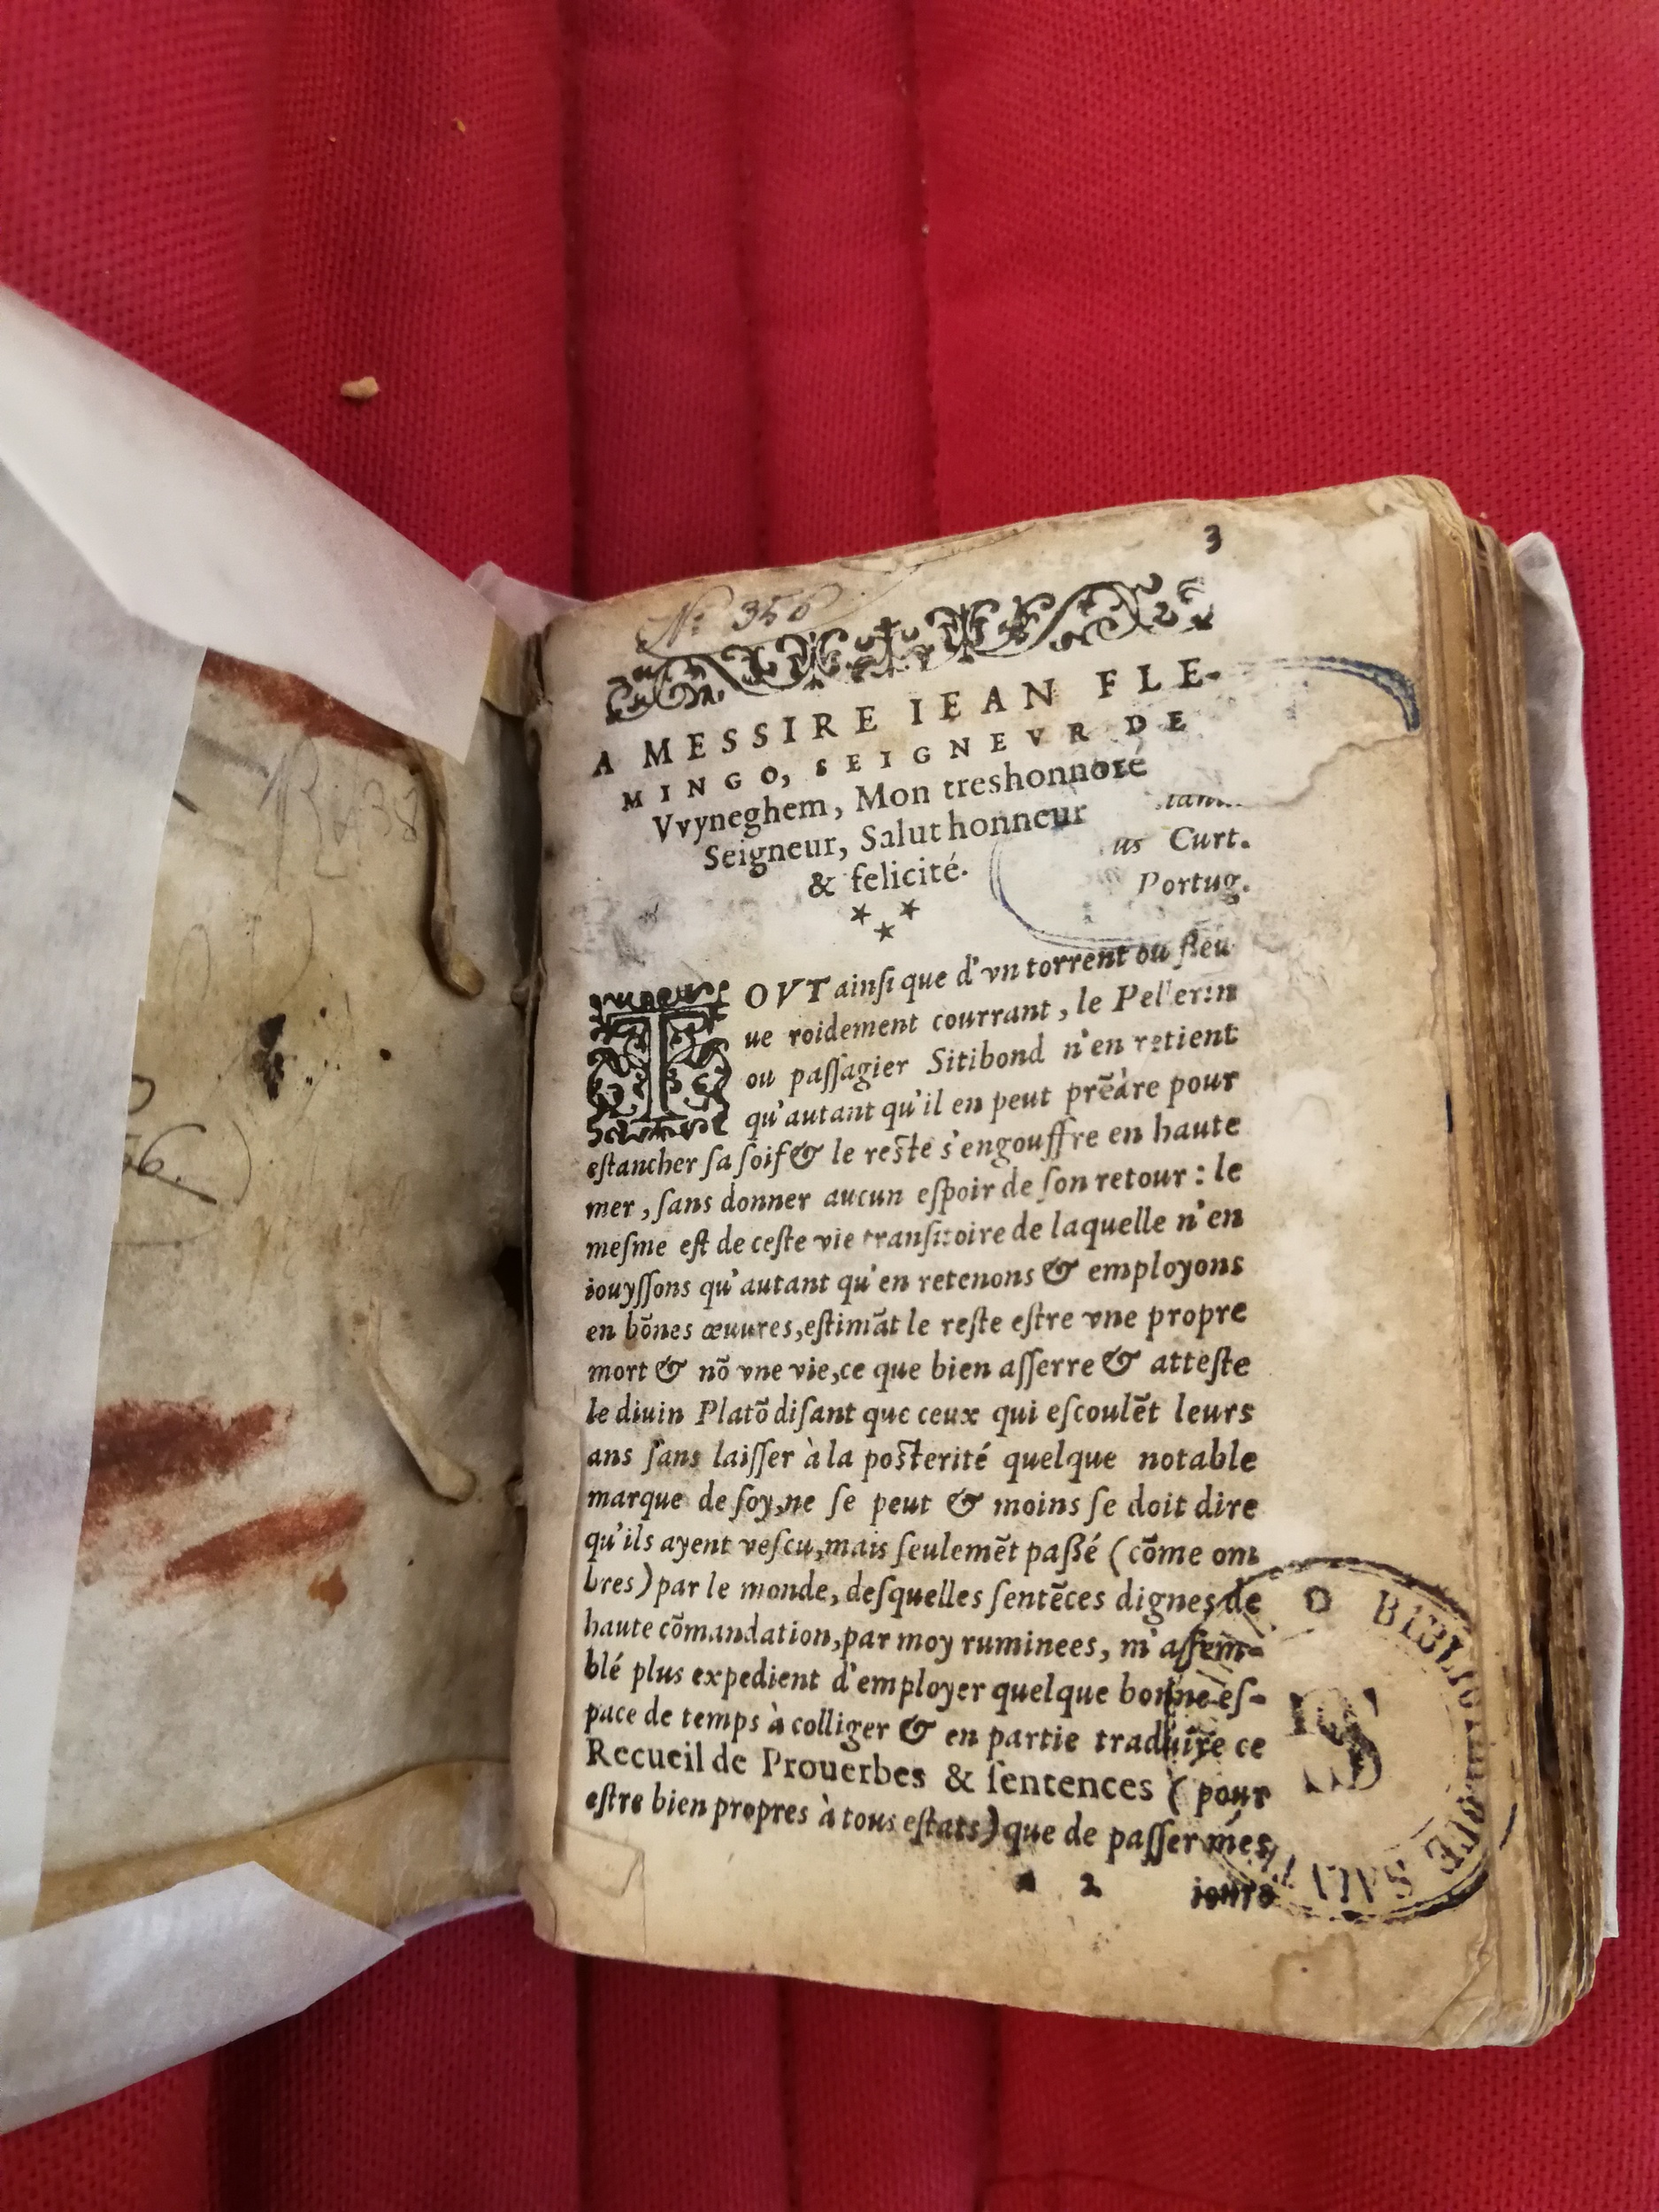 3
Nº 356
A MESSIRE IEAN FLE-
MINGO, SEIGNEVR DE
Vvyneghem, Mon treshonnoré
Seigneur, Salut honneur
& felicité.
us Curt.
Portug.
TOVT ainſi que d'vn torrent ou fleu
ue roidement courrant, le Pellerin
ou paſſagier Sitibond n'en retient
qu'autant qu'il en peut prẽdre pour
eſtancher ſa ſoif & le reſte s'engouffre en haute
mer, ſans donner aucun eſpoir de ſon retour : le
meſme eſt de ceſte vie tranſitoire de laquelle n'en
iouyſſons qu'autant qu'en retenons & employons
en bõnes œuures, eſtimãt le reſte eſtre vne propre
mort & nõ vne vie, ce que bien aſſerre & atteſte
le diuin Platõ diſant que ceux qui eſcoulẽt leurs
ans ſans laiſſer à la poſterité quelque notable
marque de ſoy, ne ſe peut & moins ſe doit dire
qu'ils ayent veſcu, mais ſeulemẽt paßé (cõme om
bres) par le monde, deſquelles ſentẽces dignes de
haute cõmandation, par moy ruminees, m'aſſem-
blé plus expedient d'employer quelque bonne eſ-
pace de temps à colliger & en partie traduire ce
Recueil de Prouerbes & ſentences (pour
eſtre bien propres à tous eſtats) que de paſſer mes
2
iours
BIBLIO